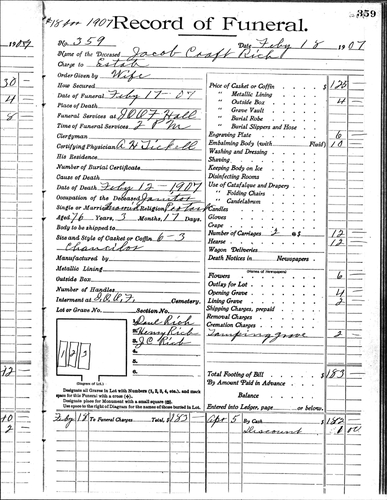 359
#18 for 1907 Record of Funeral.
No. 359 Date Feby 18 1907
Name of the Deceased Jacob Craft Rich
Charge to Estate
Order Given by Wife
How Secured
Date of Funeral Feby 17 - 07
Place of Death
Funeral Services at I.O.O.F Hall
Time of Funeral Services 2 P M
Clergyman
Certifying Physician A H Tickell
His Residence
Number of Burial Certificate
Cause of Death
Date of Death Feby 12 - 1907
Occupation of the Deceased Janitor
Single or Married Married Religion
Aged 76 Years, 3 Months, 17 Days.
Body to be shipped to
Size and Style of Casket or Coffin 6-3
Chancellor
Manufactured by
Metallic Lining
Outside Box
Number of Handles
Interment at I.O.O.F. Cemetery.
Lot or Grave No. Section No.
1 2 3
Paul Rich
Henry Rich
J C Rich
(Diagram of Lot.)
Designate all Graves in Lot with Numbers (1, 2, 3, 4, etc.), and mark
space for this Funeral with a cross (+).
Designate place for Monument with a small square (□).
Use space to the right of Diagram for the names of those buried in Lot.
Feby 18 To Funeral Charges Total, $ 183
Price of Casket or Coffin $ 125
" Metallic Lining
" Outside Box 4
" Grave Vault
" Burial Robe
" Burial Slippers and Hose
Engraving Plate 6
Embalming Body (with Fluid) 10
Washing and Dressing
Shaving
Keeping Body on Ice
Disinfecting Rooms
Use of Catafalque and Drapery
" Folding Chairs
" Candelabrum
Candles
Gloves
Crape
Number of Carriages 2 @ $ 12
Hearse 12
Wagon Deliveries
Death Notices in Newspapers
Flowers 6
Outlay for Lot
Opening Grave 4
Lining Grave 2
Shipping Charges, prepaid
Removal Charges
Cremation Charges
Tamping grave 2
Total Footing of Bill $ 183
By Amount Paid in Advance
Balance
Entered into Ledger, page or below.
Apr 5 By Cash $ 182
Discount 1 00